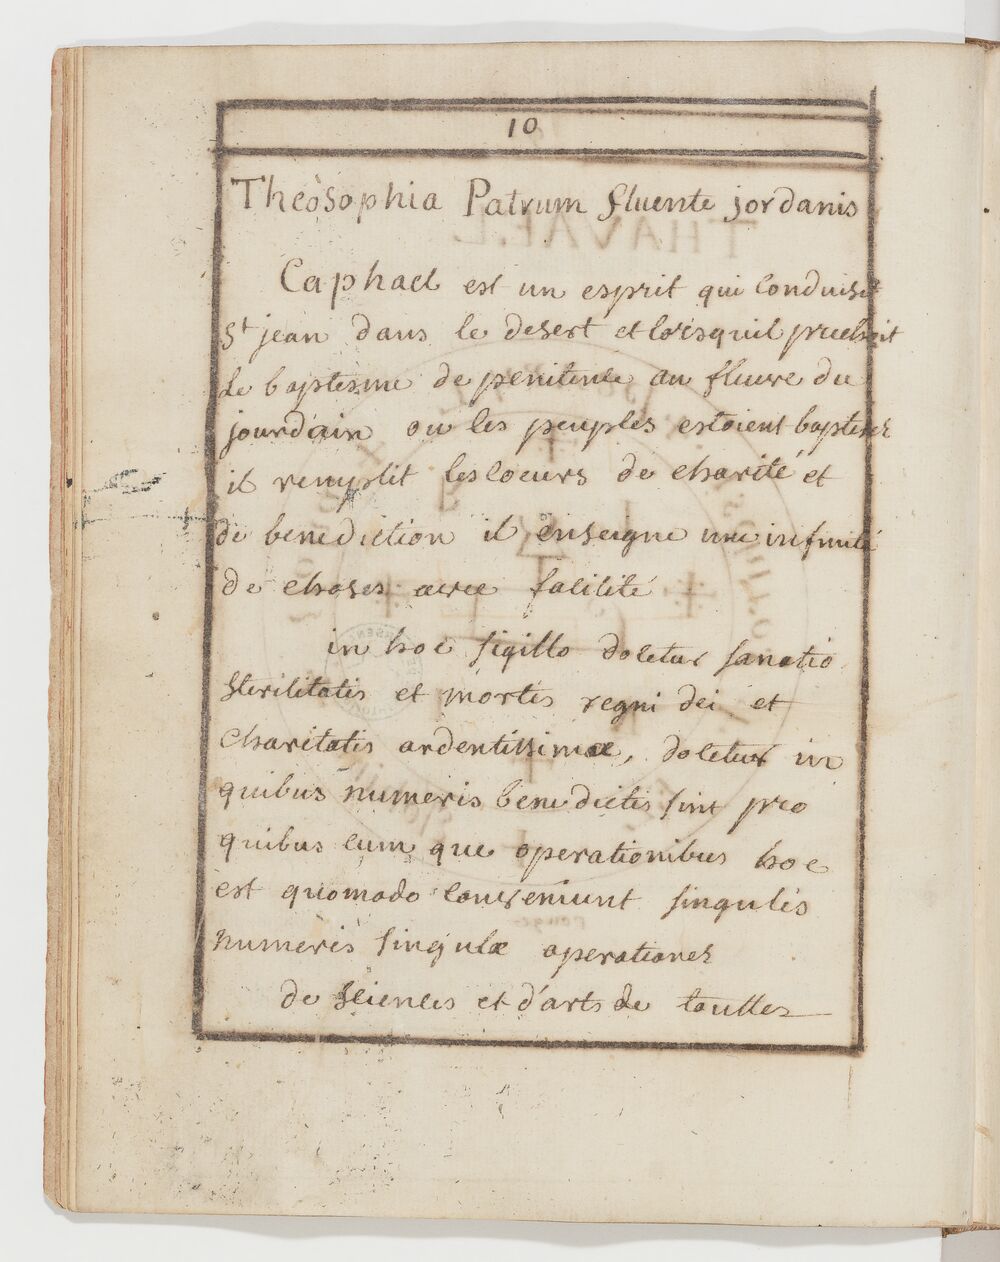 10
Theosophia Patrum fluente jordanis
Caphael est un esprit qui conduisit
St jean dans le desert et lorsquil prechoit
Le baptesme de penitence au fleuve du
jourdain ou les peuples estoient baptisez
il remplit les coeurs de charité et
de benediction il enseigne une infinité
de choses avec facilité
in hoc sigillo docetur sanatio
sterilitatis et mortis regni dei et
charitatis ardentissimæ, docetur in
quibus numeris benedictis sint pro
quibus cum que operationibus hoc
est quomodo conveniunt singulis
numeris singulæ operationes
de sciences et d'arts de touttes